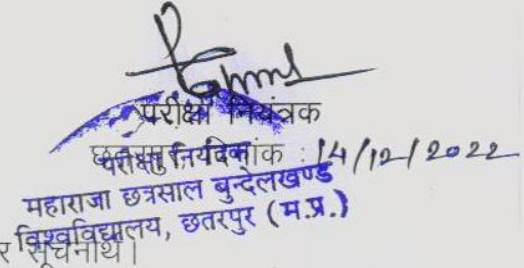 परीक्षा नियंत्रक
छतरपुर, दिनांक : 14/12/2022
परीक्षा नियंत्रक
महाराजा छत्रसाल बुन्देलखण्ड
विश्वविद्यालय, छतरपुर (म.प्र.)
र सूचनार्थ।